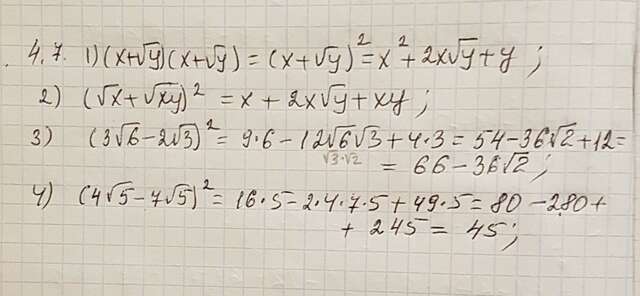 4.7. 1) (x+√y)(x+√y) = (x+√y)² = x² + 2x√y + y ;
2) (√x + √xy)² = x + 2x√y + xy ;
3) (3√6 - 2√3)² = 9·6 - 12√6√3 + 4·3 = 54 - 36√2 + 12 =
√3·√2
= 66 - 36√2 ;
4) (4√5 - 7√5)² = 16·5 - 2·4·7·5 + 49·5 = 80 - 280 +
+ 245 = 45 ;